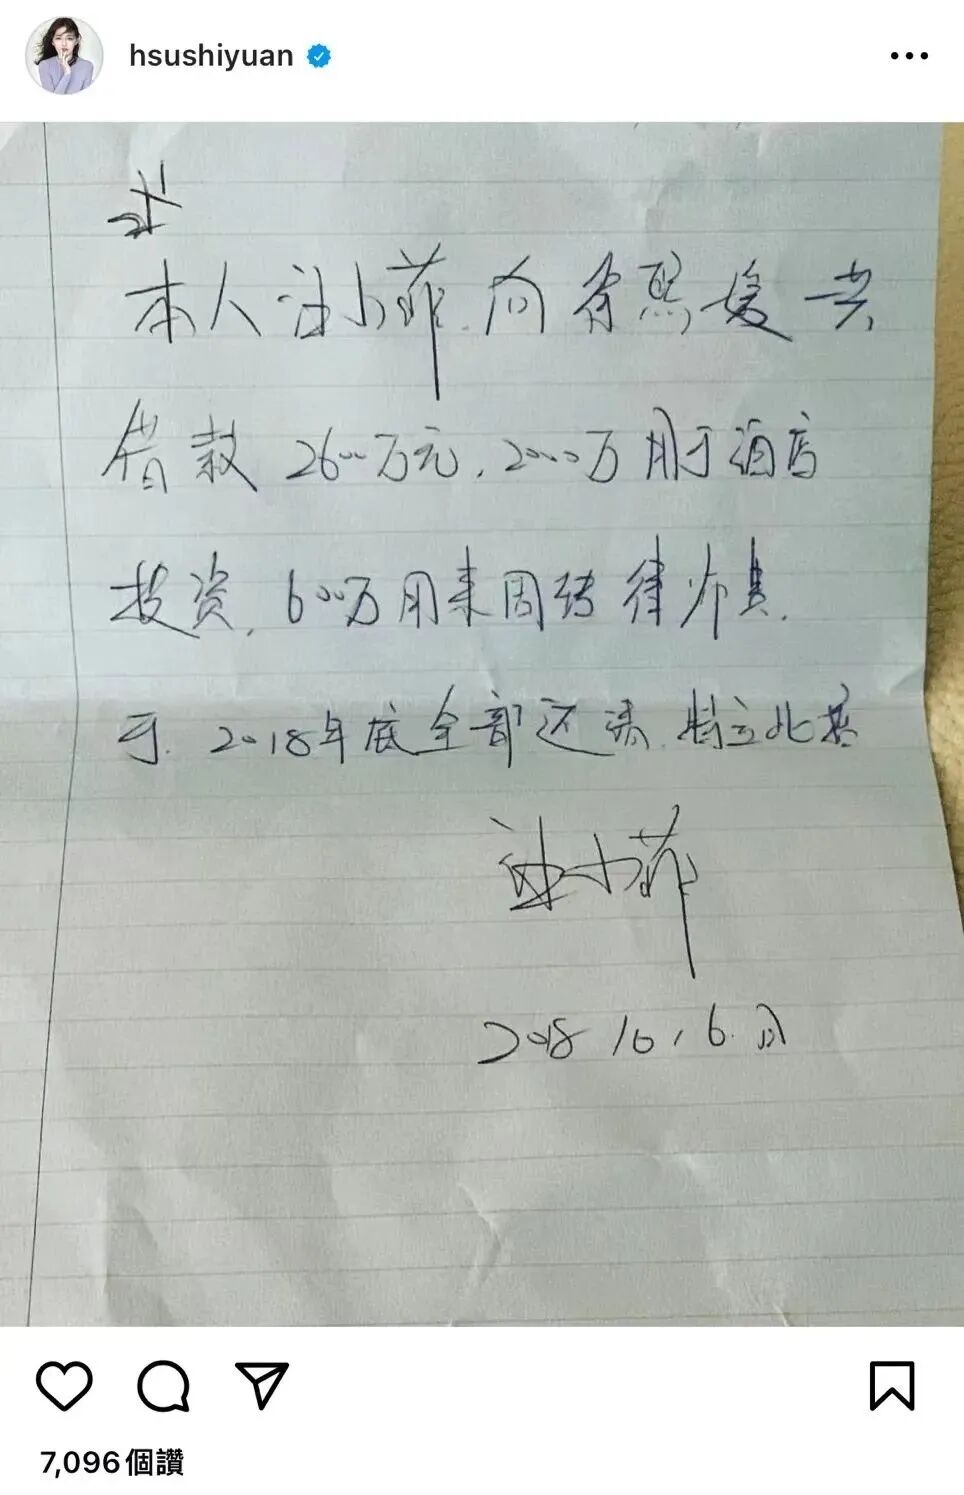 hsushiyuan
本人汪小菲.向徐熙媛一共
借款2600万元.2000万用于酒店
投资.600万用来周转律师费.
于.2018年底全部还清.特立此据
汪小菲
2018 10,6.日
7,096個讚